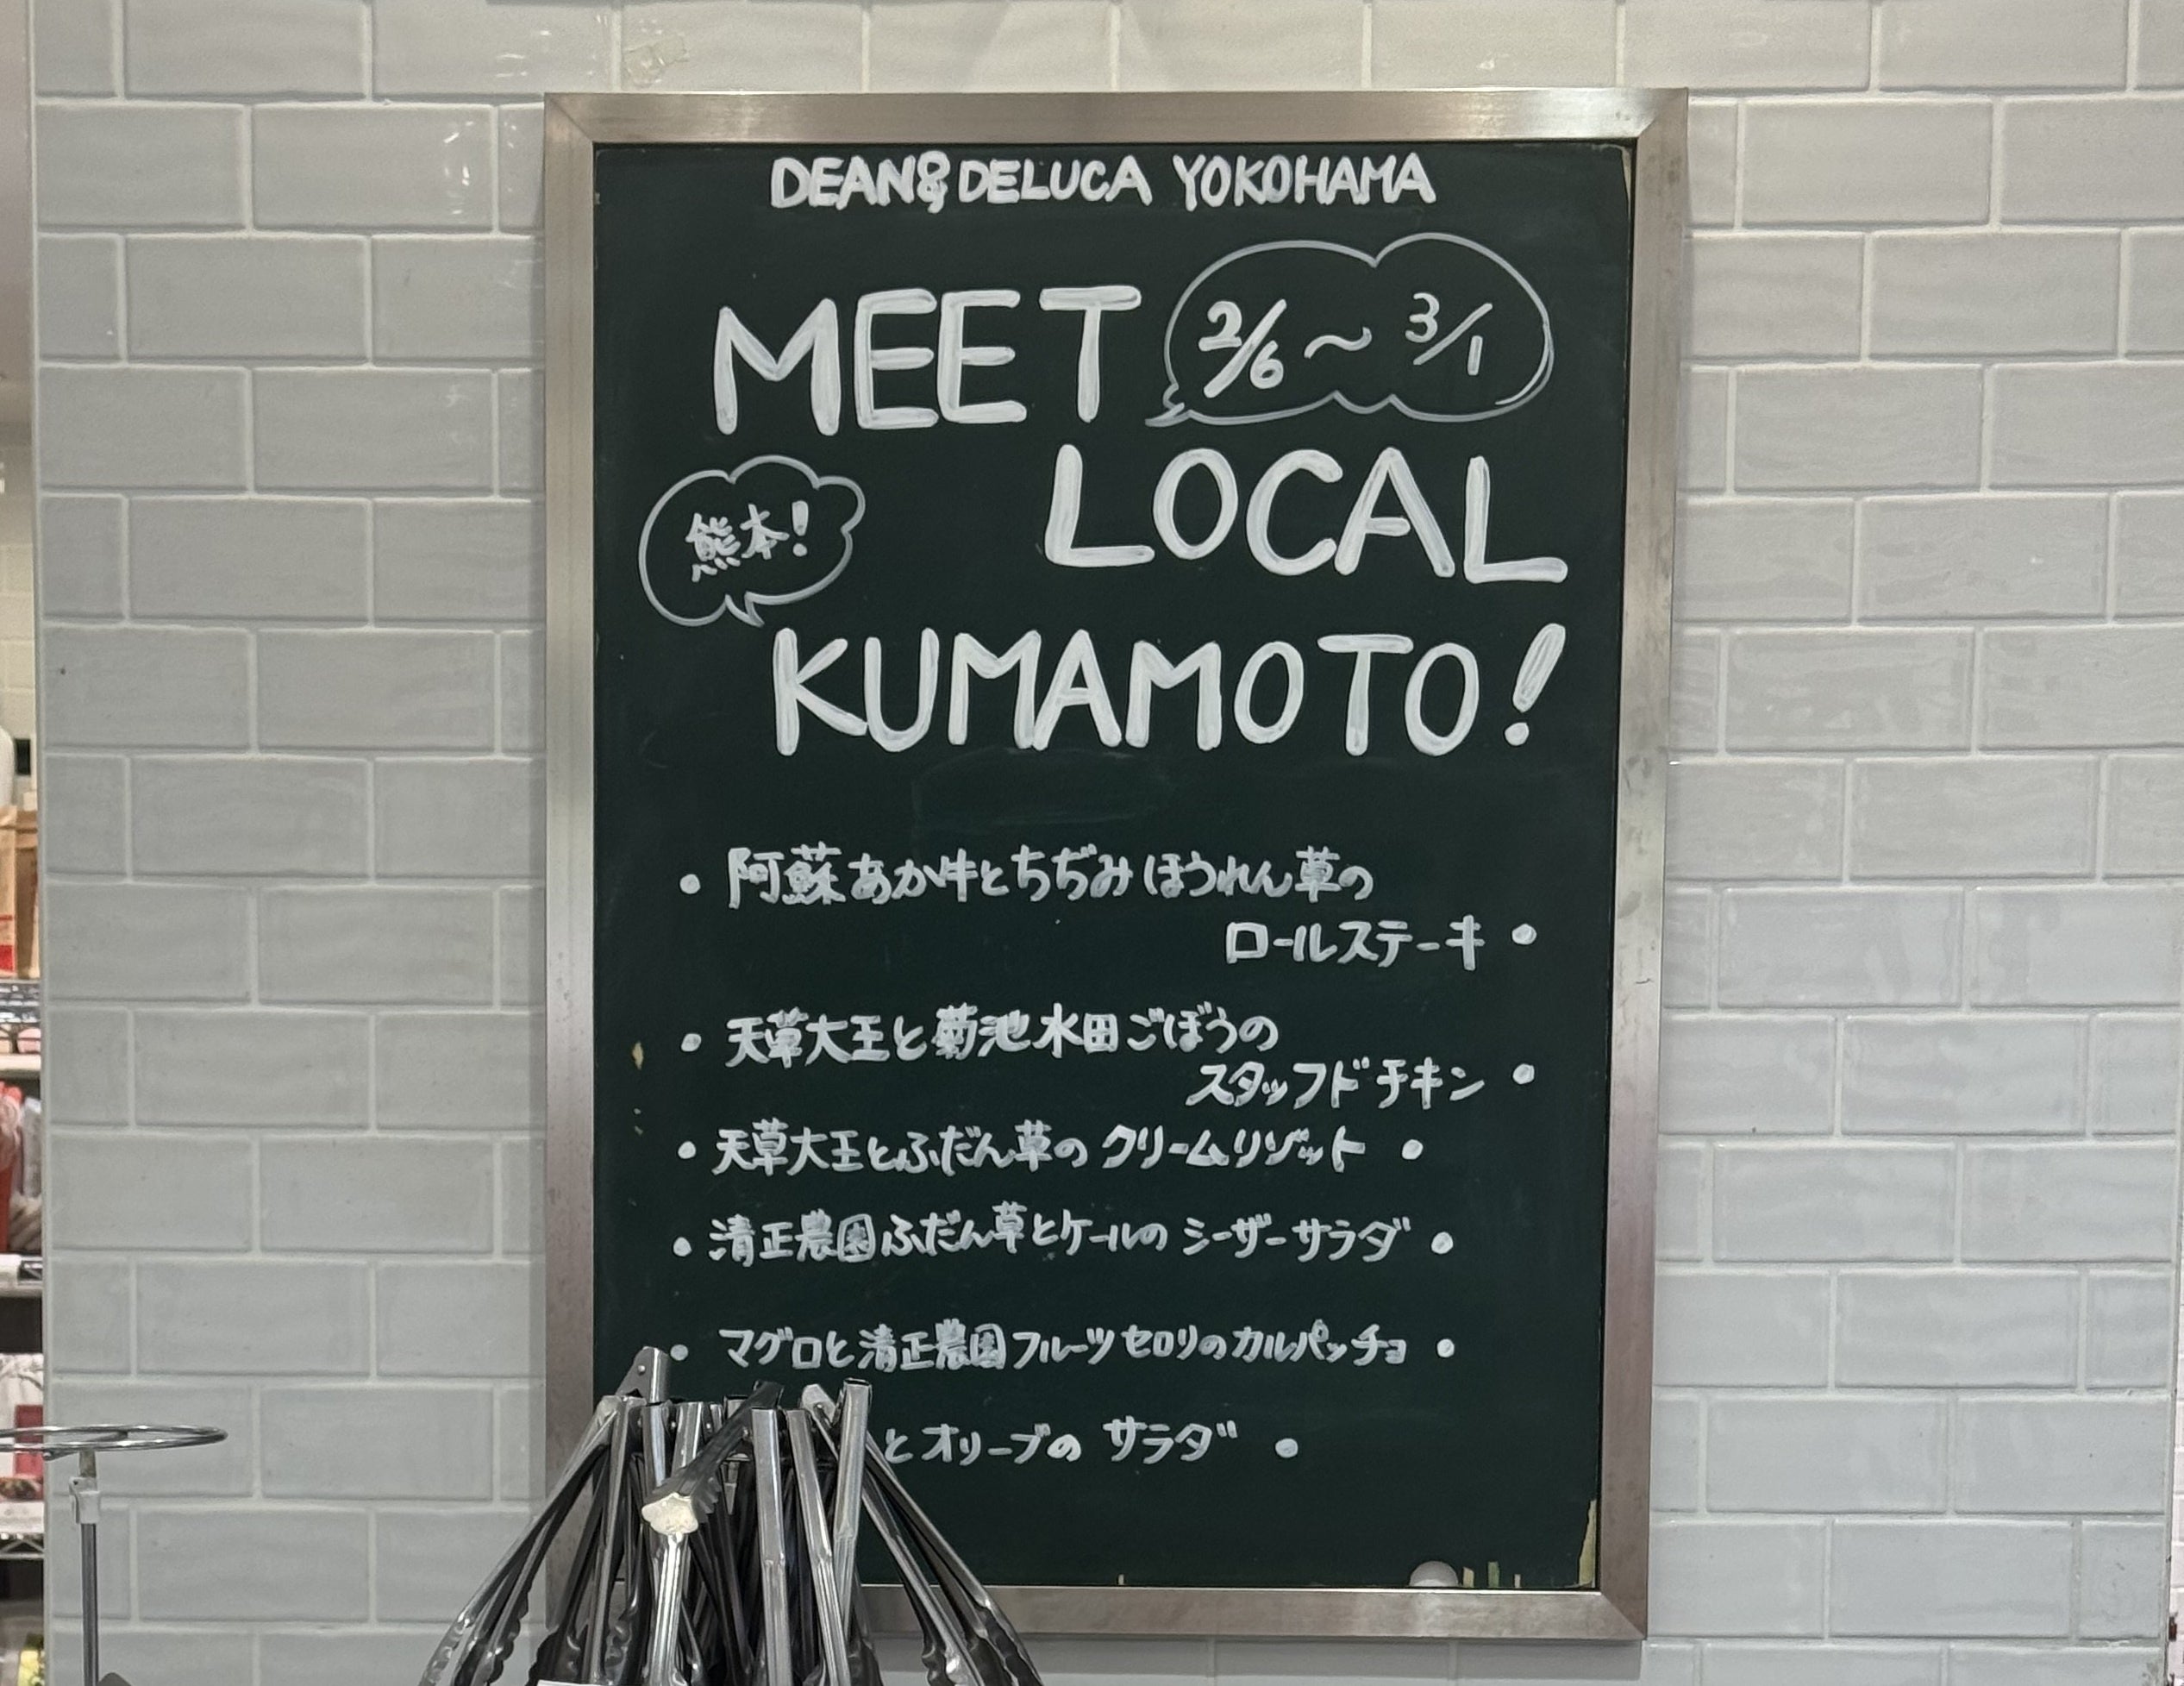 DEAN&DELUCA YOKOHAMA
MEET 2/6～3/1
LOCAL
熊本!
KUMAMOTO!
• 阿蘇あか牛とちぢみほうれん草の
ロールステーキ •
• 天草大王と菊池水田ごぼうの
スタッフドチキン •
• 天草大王とふだん草のクリームリゾット •
• 清正農園ふだん草とケールのシーザーサラダ •
• マグロと清正農園フルーツセロリのカルパッチョ •
とオリーブのサラダ •